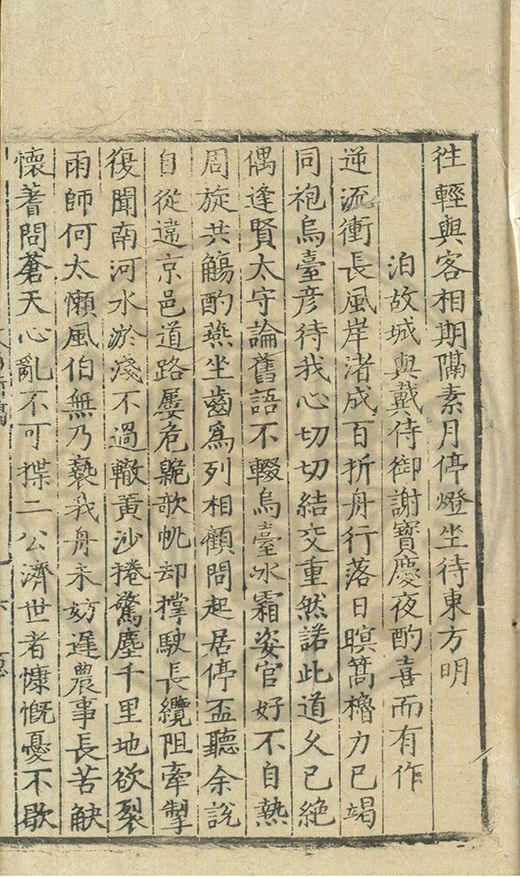 往輕輿客相期隔素月停燈坐待東方明
泊故城與戴侍御謝寶慶夜酌喜而有作
逆流衝長風岸渚成百折舟行落日暝篙櫓力已竭
同袍烏臺彦待我心切切結交重然諾此道久已絶
偶逢賢太守論舊語不輟烏臺冰霜姿官好不自熱
周旋共觴酌燕坐齒爲列相顧問起居停盃聽余說
自從違京邑道路屢危臲歌帆却撑駛長纜阻牽掣
復聞南河水淤淺不過轍黄沙捲驚塵千里地欲裂
雨師何太懶風伯無乃褻我舟未妨遲農事長苦觖
懷蓍問蒼天心亂不可揲二公濟世者慷慨憂不歇